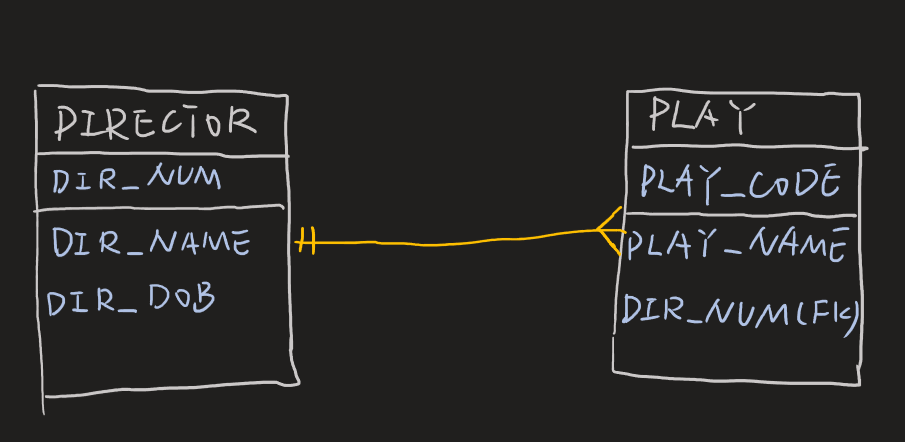 DIRECTOR
DIR_NUM
DIR_NAME
DIR_DOB
PLAY
PLAY_CODE
PLAY_NAME
DIR_NUM(FK)